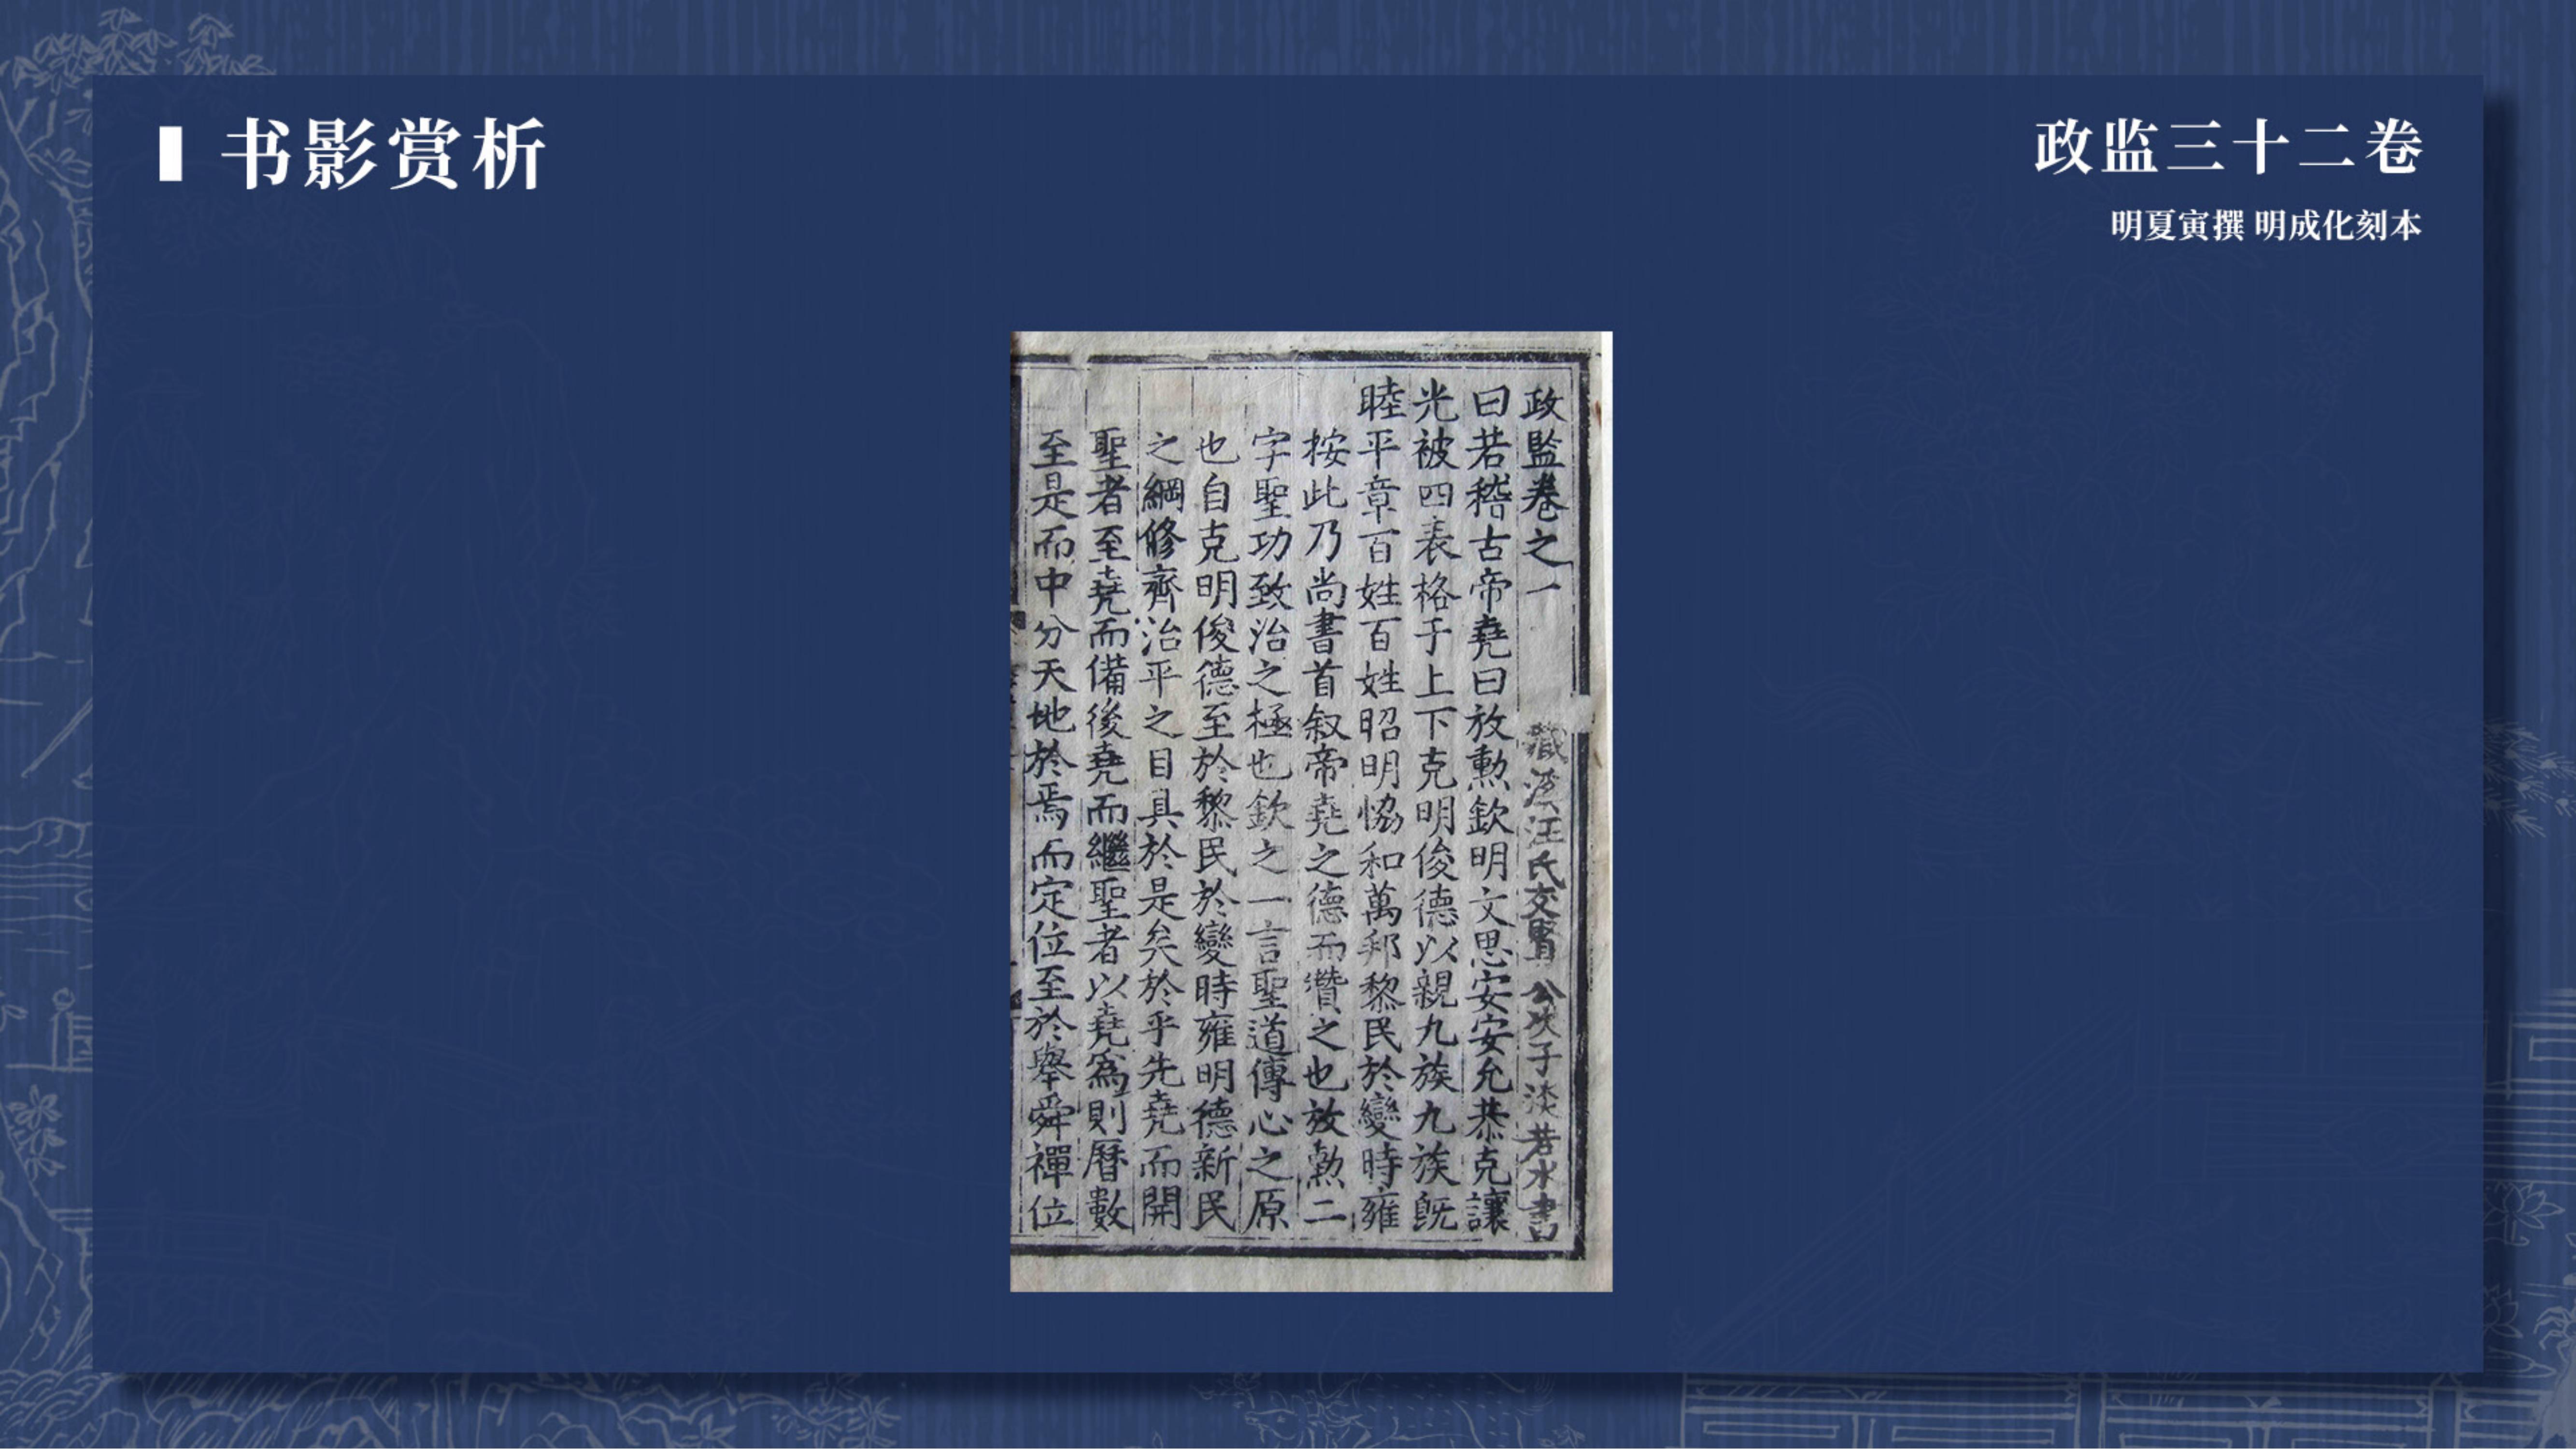 书影赏析
政监三十二卷
明夏寅撰 明成化刻本
政監卷之一 汪氏交賢 公次子淡若水書
曰若稽古帝堯曰放勲欽明文思安安允恭克讓
光被四表格于上下克明俊德以親九族九族旣
睦平章百姓百姓昭明恊和萬邦黎民於變時雍
按此乃尚書首叙帝堯之德而讚之也放勲二
字聖功致治之極也欽之一言聖道傳心之原
也自克明俊德至於黎民於變時雍明德新民
之綱修齊治平之目具於是矣於乎先堯而開
聖者至堯而備後堯而繼聖者以堯爲則曆數
至是而中分天地於焉而定位至於舉舜禪位